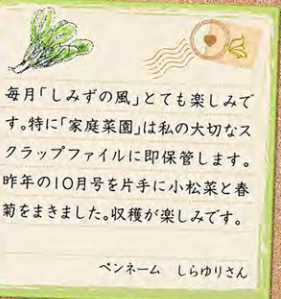 毎月「しみずの風」とても楽しみで
す。特に「家庭菜園」は私の大切なス
クラップファイルに即保管します。
昨年の10月号を片手に小松菜と春
菊をまきました。収穫が楽しみです。
ペンネーム　しらゆりさん